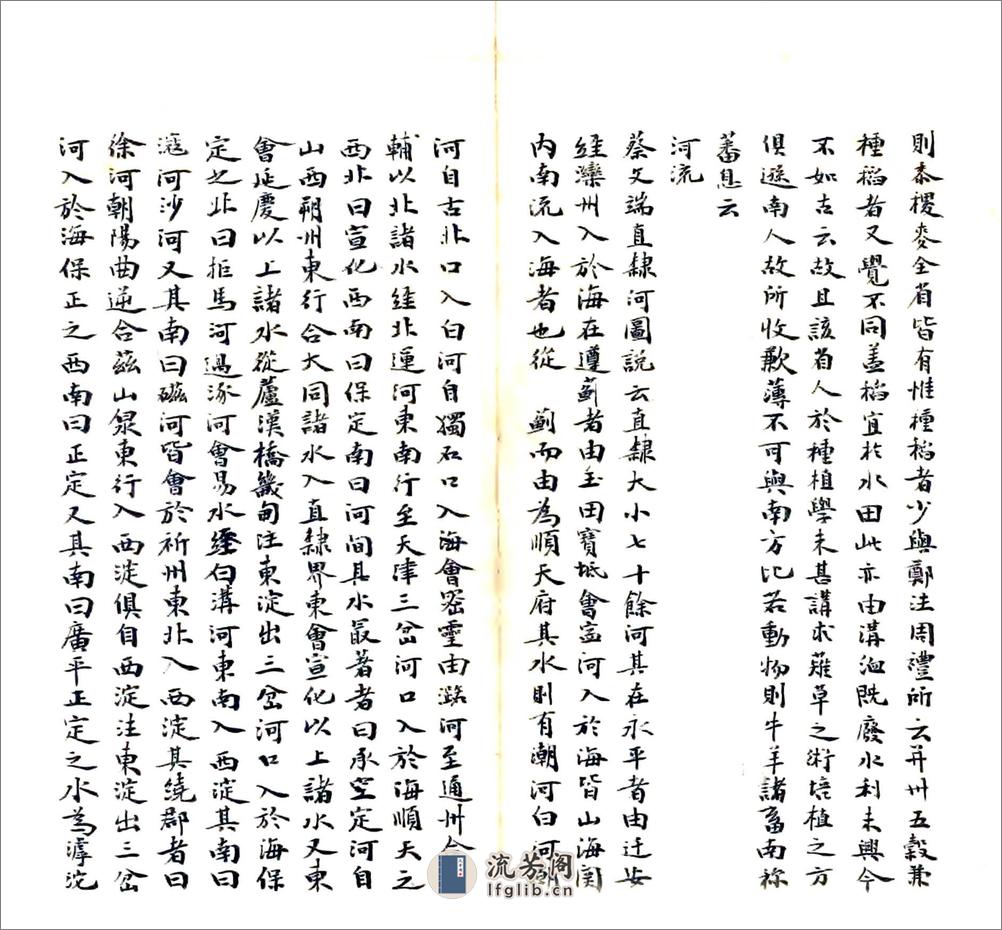 則黍稷麥全省皆有惟種稻者少與鄭注周禮所云并州五穀兼
種稻者又覺不同盖稻宜於水田此亦由溝洫既廢水利未興今
不如古云故且該省人於種植學未甚講求薙草之術培植之方
俱遜南人故所收歉薄不可與南方比若動物則牛羊諸畜南
蕃息云
河流
蔡文端直隸河圖說云直隸大小七十餘河其在永平者由迁安
経灤州入於海在遵薊者由玉田寶坻會宝河入於海皆山海関
内南流入海者也從 薊而由為順天府其水則有潮河白河
河自古北口入白河自獨石口入海會密雲由潞河至通州
輔以北諸水経北運河東南行至天津三岔河口入於海順天之
西北曰宣化西南曰保定南曰河间其水最著者曰永定河自
山西朔州東行合大同諸水入直隸界東會宣化以上諸水又東
會延慶以上諸水從蘆漢橋畿甸注東淀出三岔河口入於海保
定之北曰拒馬河過涿河會易水經白溝河東南入西淀其南曰
滱河沙河又其南曰磁河皆會於祈州東北入西淀其繞郡者曰
徐河朝陽曲逆合蒞山泉東行入西淀俱自西淀注東淀出三岔
河入於海保正之西南曰正定又其南曰廣平正定之水為滹沱
流芳阁
lfglib.cn